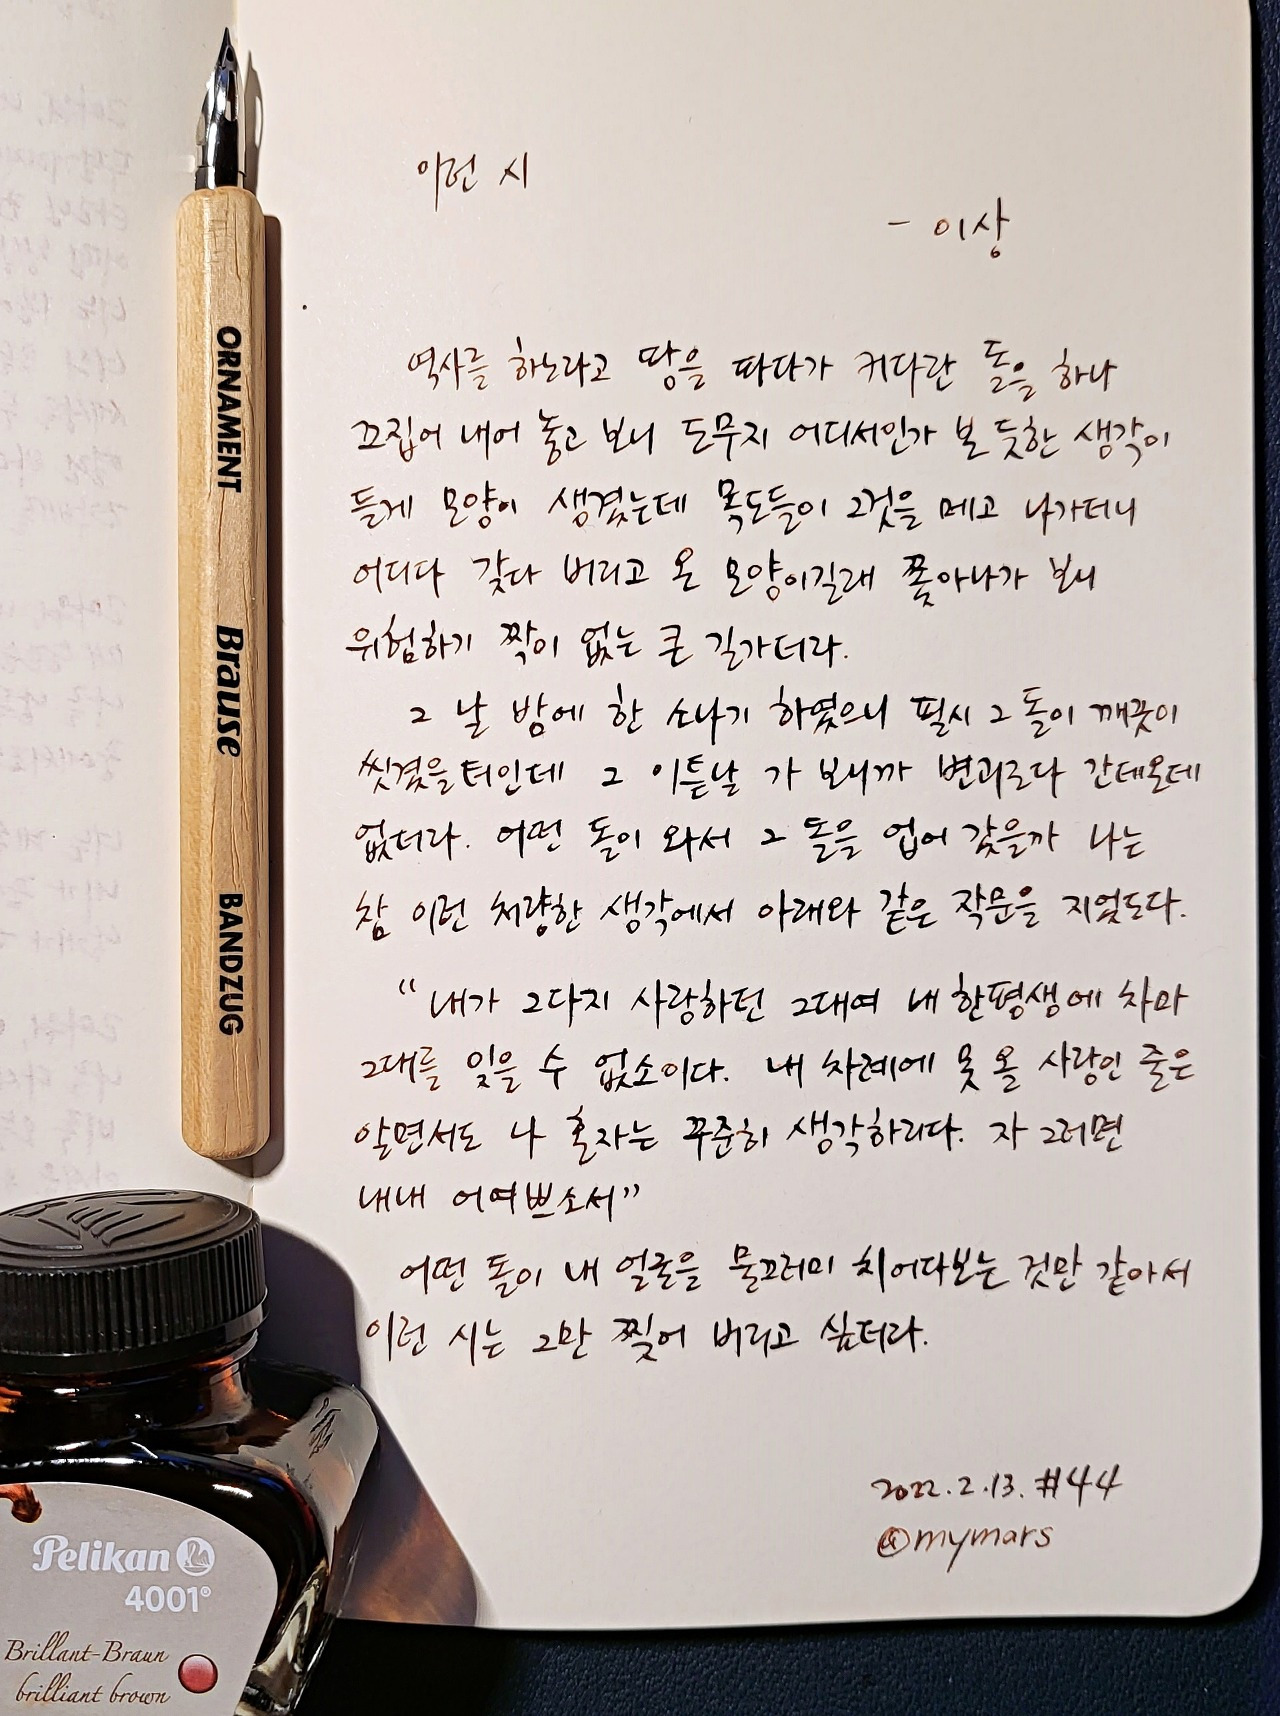 이런 시
- 이상
역사를 하노라고 땅을 파다가 커다란 돌을 하나
끄집어 내어 놓고 보니 도무지 어디서인가 본 듯한 생각이
들게 모양이 생겼는데 목도들이 그것을 메고 나가더니
어디다 갖다 버리고 온 모양이길래 쫓아나가 보니
위험하기 짝이 없는 큰 길가더라.
그 날 밤에 한 소나기 하였으니 필시 그 돌이 깨끗이
씻겼을터인데 그 이튿날 가 보니까 변괴로다 간데온데
없더라. 어떤 돌이 와서 그 돌을 업어 갔을까 나는
참 이런 처량한 생각에서 아래와 같은 작문을 지었도다.
“내가 그다지 사랑하던 그대여 내 한평생에 차마
그대를 잊을 수 없소이다. 내 차례에 못 올 사랑인 줄은
알면서도 나 혼자는 꾸준히 생각하리다. 자 그러면
내내 어여쁘소서”
어떤 돌이 내 얼굴을 물끄러미 치어다보는 것만 같아서
이런 시는 그만 찢어 버리고 싶더라.
2022.2.13. #44
@mymars
ORNAMENT
Brause
BANDZUG
Pelikan
4001®
Brillant-Braun
brilliant brown